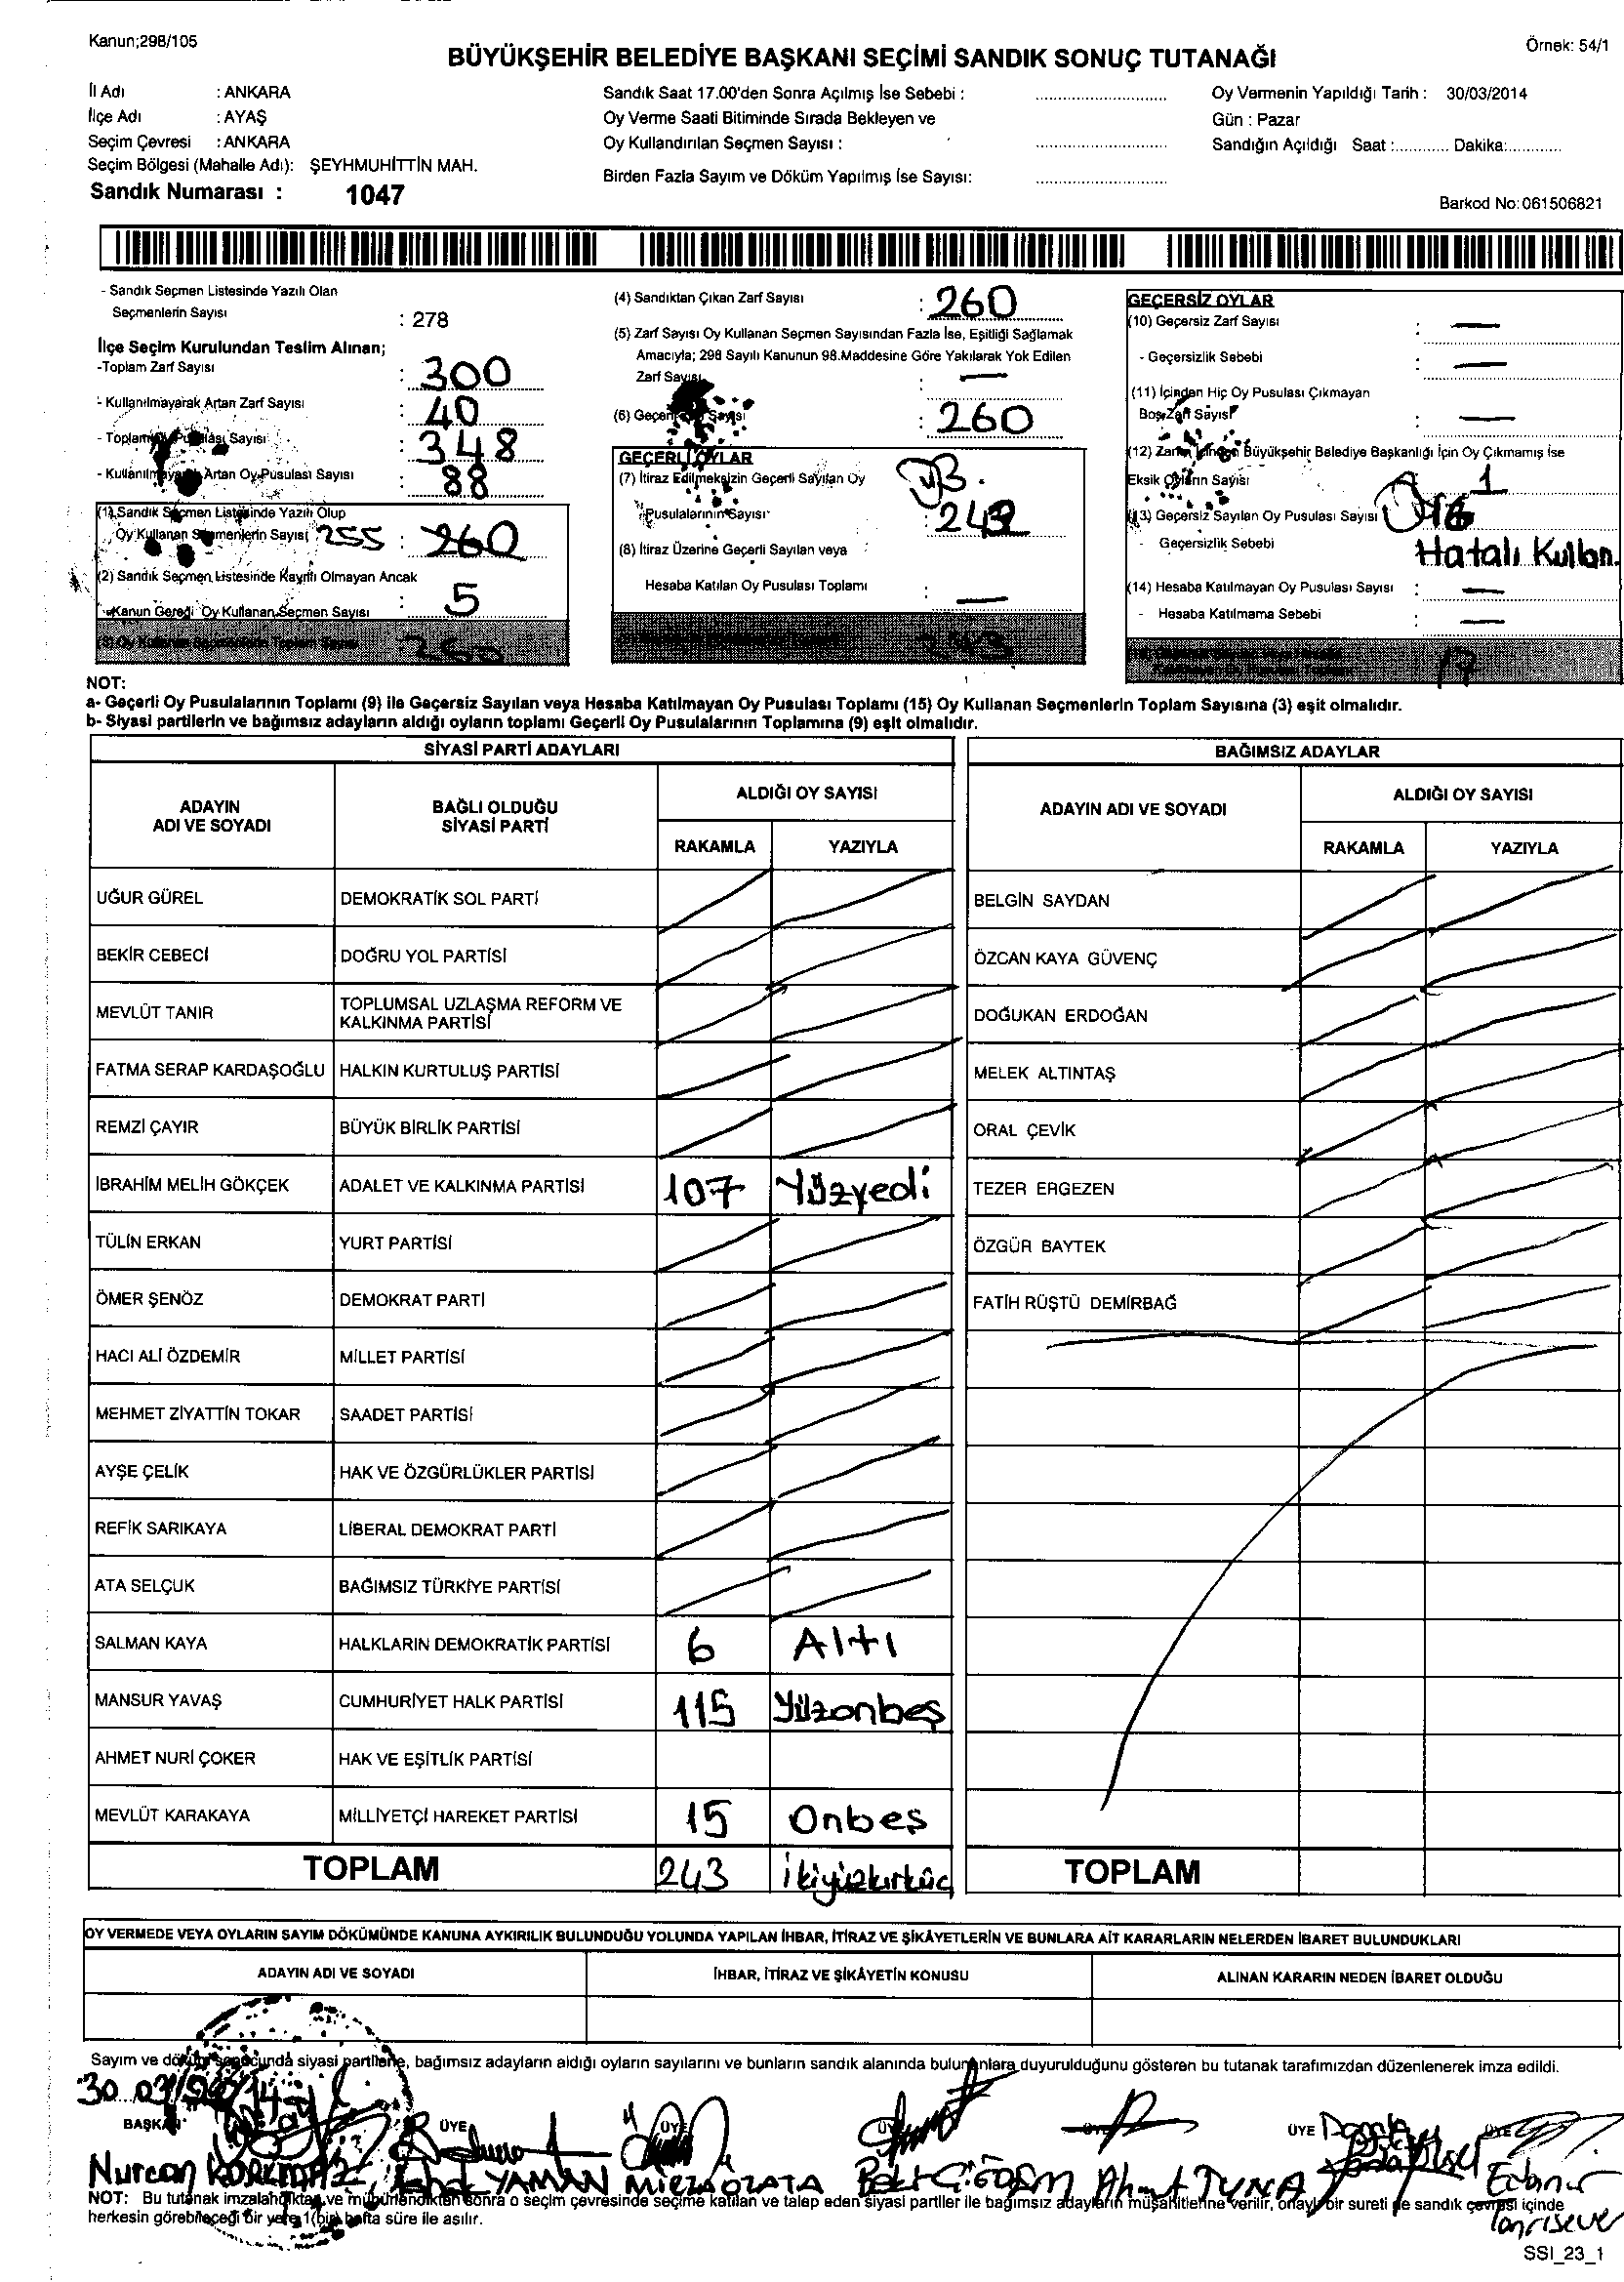 Kanun;298/105
Örnek: 54/1
BÜYÜKŞEHİR BELEDİYE BAŞKANI SEÇİMİ SANDIK SONUÇ TUTANAĞI
İl Adı : ANKARA
İlçe Adı : AYAŞ
Seçim Çevresi : ANKARA
Seçim Bölgesi (Mahalle Adı): ŞEYHMUHİTTİN MAH.
Sandık Numarası : 1047
Sandık Saat 17.00'den Sonra Açılmış İse Sebebi :
Oy Verme Saati Bitiminde Sırada Bekleyen ve
Oy Kullandırılan Seçmen Sayısı :
Birden Fazla Sayım ve Döküm Yapılmış İse Sayısı:
Oy Vermenin Yapıldığı Tarih : 30/03/2014
Gün : Pazar
Sandığın Açıldığı Saat :........... Dakika:...........
Barkod No:061506821
- Sandık Seçmen Listesinde Yazılı Olan
Seçmenlerin Sayısı : 278
İlçe Seçim Kurulundan Teslim Alınan;
-Toplam Zarf Sayısı : 300
- Kullanılmayarak Artan Zarf Sayısı : 40
- Toplam Oy Pusulası Sayısı : 348
- Kullanılmayarak Artan Oy Pusulası Sayısı : 88
(1) Sandık Seçmen Listesinde Yazılı Olup
Oy Kullanan Seçmenlerin Sayısı 255 : 260
(2) Sandık Seçmen Listesinde Kayıtlı Olmayan Ancak
Kanun Gereği Oy Kullanan Seçmen Sayısı : 5
(3) Oy Kullanan Seçmenlerin Toplam Sayısı 260
(4) Sandıktan Çıkan Zarf Sayısı : 260
(5) Zarf Sayısı Oy Kullanan Seçmen Sayısından Fazla İse, Eşitliği Sağlamak
Amacıyla; 298 Sayılı Kanunun 98.Maddesine Göre Yakılarak Yok Edilen
Zarf Sayısı : —
(6) Geçerli Zarf Sayısı : 260
GEÇERLİ OYLAR
(7) İtiraz Edilmeksizin Geçerli Sayılan Oy
Pusulalarının Sayısı : 243
(8) İtiraz Üzerine Geçerli Sayılan veya
Hesaba Katılan Oy Pusulası Toplamı : —
243
GEÇERSİZ OYLAR
(10) Geçersiz Zarf Sayısı : —
- Geçersizlik Sebebi : —
(11) İçinden Hiç Oy Pusulası Çıkmayan
Boş Zarf Sayısı : —
(12) Zarfın İçinden Büyükşehir Belediye Başkanlığı İçin Oy Çıkmamış İse
Eksik Oyların Sayısı : 1
(13) Geçersiz Sayılan Oy Pusulası Sayısı 16
- Geçersizlik Sebebi Hatalı Kullan.
(14) Hesaba Katılmayan Oy Pusulası Sayısı : —
- Hesaba Katılmama Sebebi : —
17
NOT:
a- Geçerli Oy Pusulalarının Toplamı (9) ile Geçersiz Sayılan veya Hesaba Katılmayan Oy Pusulası Toplamı (15) Oy Kullanan Seçmenlerin Toplam Sayısına (3) eşit olmalıdır.
b- Siyasi partilerin ve bağımsız adayların aldığı oyların toplamı Geçerli Oy Pusulalarının Toplamına (9) eşit olmalıdır.
SİYASİ PARTİ ADAYLARI
ADAYIN ADI VE SOYADI BAĞLI OLDUĞU SİYASİ PARTİ ALDIĞI OY SAYISI
RAKAMLA YAZIYLA
UĞUR GÜREL DEMOKRATİK SOL PARTİ
BEKİR CEBECİ DOĞRU YOL PARTİSİ
MEVLÜT TANIR TOPLUMSAL UZLAŞMA REFORM VE KALKINMA PARTİSİ
FATMA SERAP KARDAŞOĞLU HALKIN KURTULUŞ PARTİSİ
REMZİ ÇAYIR BÜYÜK BİRLİK PARTİSİ
İBRAHİM MELİH GÖKÇEK ADALET VE KALKINMA PARTİSİ 107 Yüzyedi
TÜLİN ERKAN YURT PARTİSİ
ÖMER ŞENÖZ DEMOKRAT PARTİ
HACI ALİ ÖZDEMİR MİLLET PARTİSİ
MEHMET ZİYATTİN TOKAR SAADET PARTİSİ
AYŞE ÇELİK HAK VE ÖZGÜRLÜKLER PARTİSİ
REFİK SARIKAYA LİBERAL DEMOKRAT PARTİ
ATA SELÇUK BAĞIMSIZ TÜRKİYE PARTİSİ
SALMAN KAYA HALKLARIN DEMOKRATİK PARTİSİ 6 Altı
MANSUR YAVAŞ CUMHURİYET HALK PARTİSİ 115 Yüzonbeş
AHMET NURİ ÇOKER HAK VE EŞİTLİK PARTİSİ
MEVLÜT KARAKAYA MİLLİYETÇİ HAREKET PARTİSİ 15 Onbeş
TOPLAM 243 İkiyüzkırküç
BAĞIMSIZ ADAYLAR
ADAYIN ADI VE SOYADI ALDIĞI OY SAYISI
RAKAMLA YAZIYLA
BELGİN SAYDAN
ÖZCAN KAYA GÜVENÇ
DOĞUKAN ERDOĞAN
MELEK ALTINTAŞ
ORAL ÇEVİK
TEZER ERGEZEN
ÖZGÜR BAYTEK
FATİH RÜŞTÜ DEMİRBAĞ
TOPLAM
OY VERMEDE VEYA OYLARIN SAYIM DÖKÜMÜNDE KANUNA AYKIRILIK BULUNDUĞU YOLUNDA YAPILAN İHBAR, İTİRAZ VE ŞİKÂYETLERİN VE BUNLARA AİT KARARLARIN NELERDEN İBARET BULUNDUKLARI
ADAYIN ADI VE SOYADI İHBAR, İTİRAZ VE ŞİKÂYETİN KONUSU ALINAN KARARIN NEDEN İBARET OLDUĞU
Sayım ve döküm sonucunda siyasi partilere, bağımsız adayların aldığı oyların sayılarını ve bunların sandık alanında bulunanlara duyurulduğunu gösteren bu tutanak tarafımızdan düzenlenerek imza edildi.
30.03/2014
BAŞKAN ÜYE ÜYE ÜYE ÜYE ÜYE ÜYE
Nurcan KORKMAZ YAMAN MİRZA ÖZATA Bekir ÇİĞDEM Ahmet TUNA Edanur Tanrısever
NOT: Bu tutanak imzalandıktan ve mühürlendikten sonra o seçim çevresinde seçime katılan ve talep eden siyasi partiler ile bağımsız adayların müşahitlerine verilir, onaylı bir sureti de sandık çevresi içinde
herkesin görebileceği bir yere 1(bir) hafta süre ile asılır.
SSI_23_1